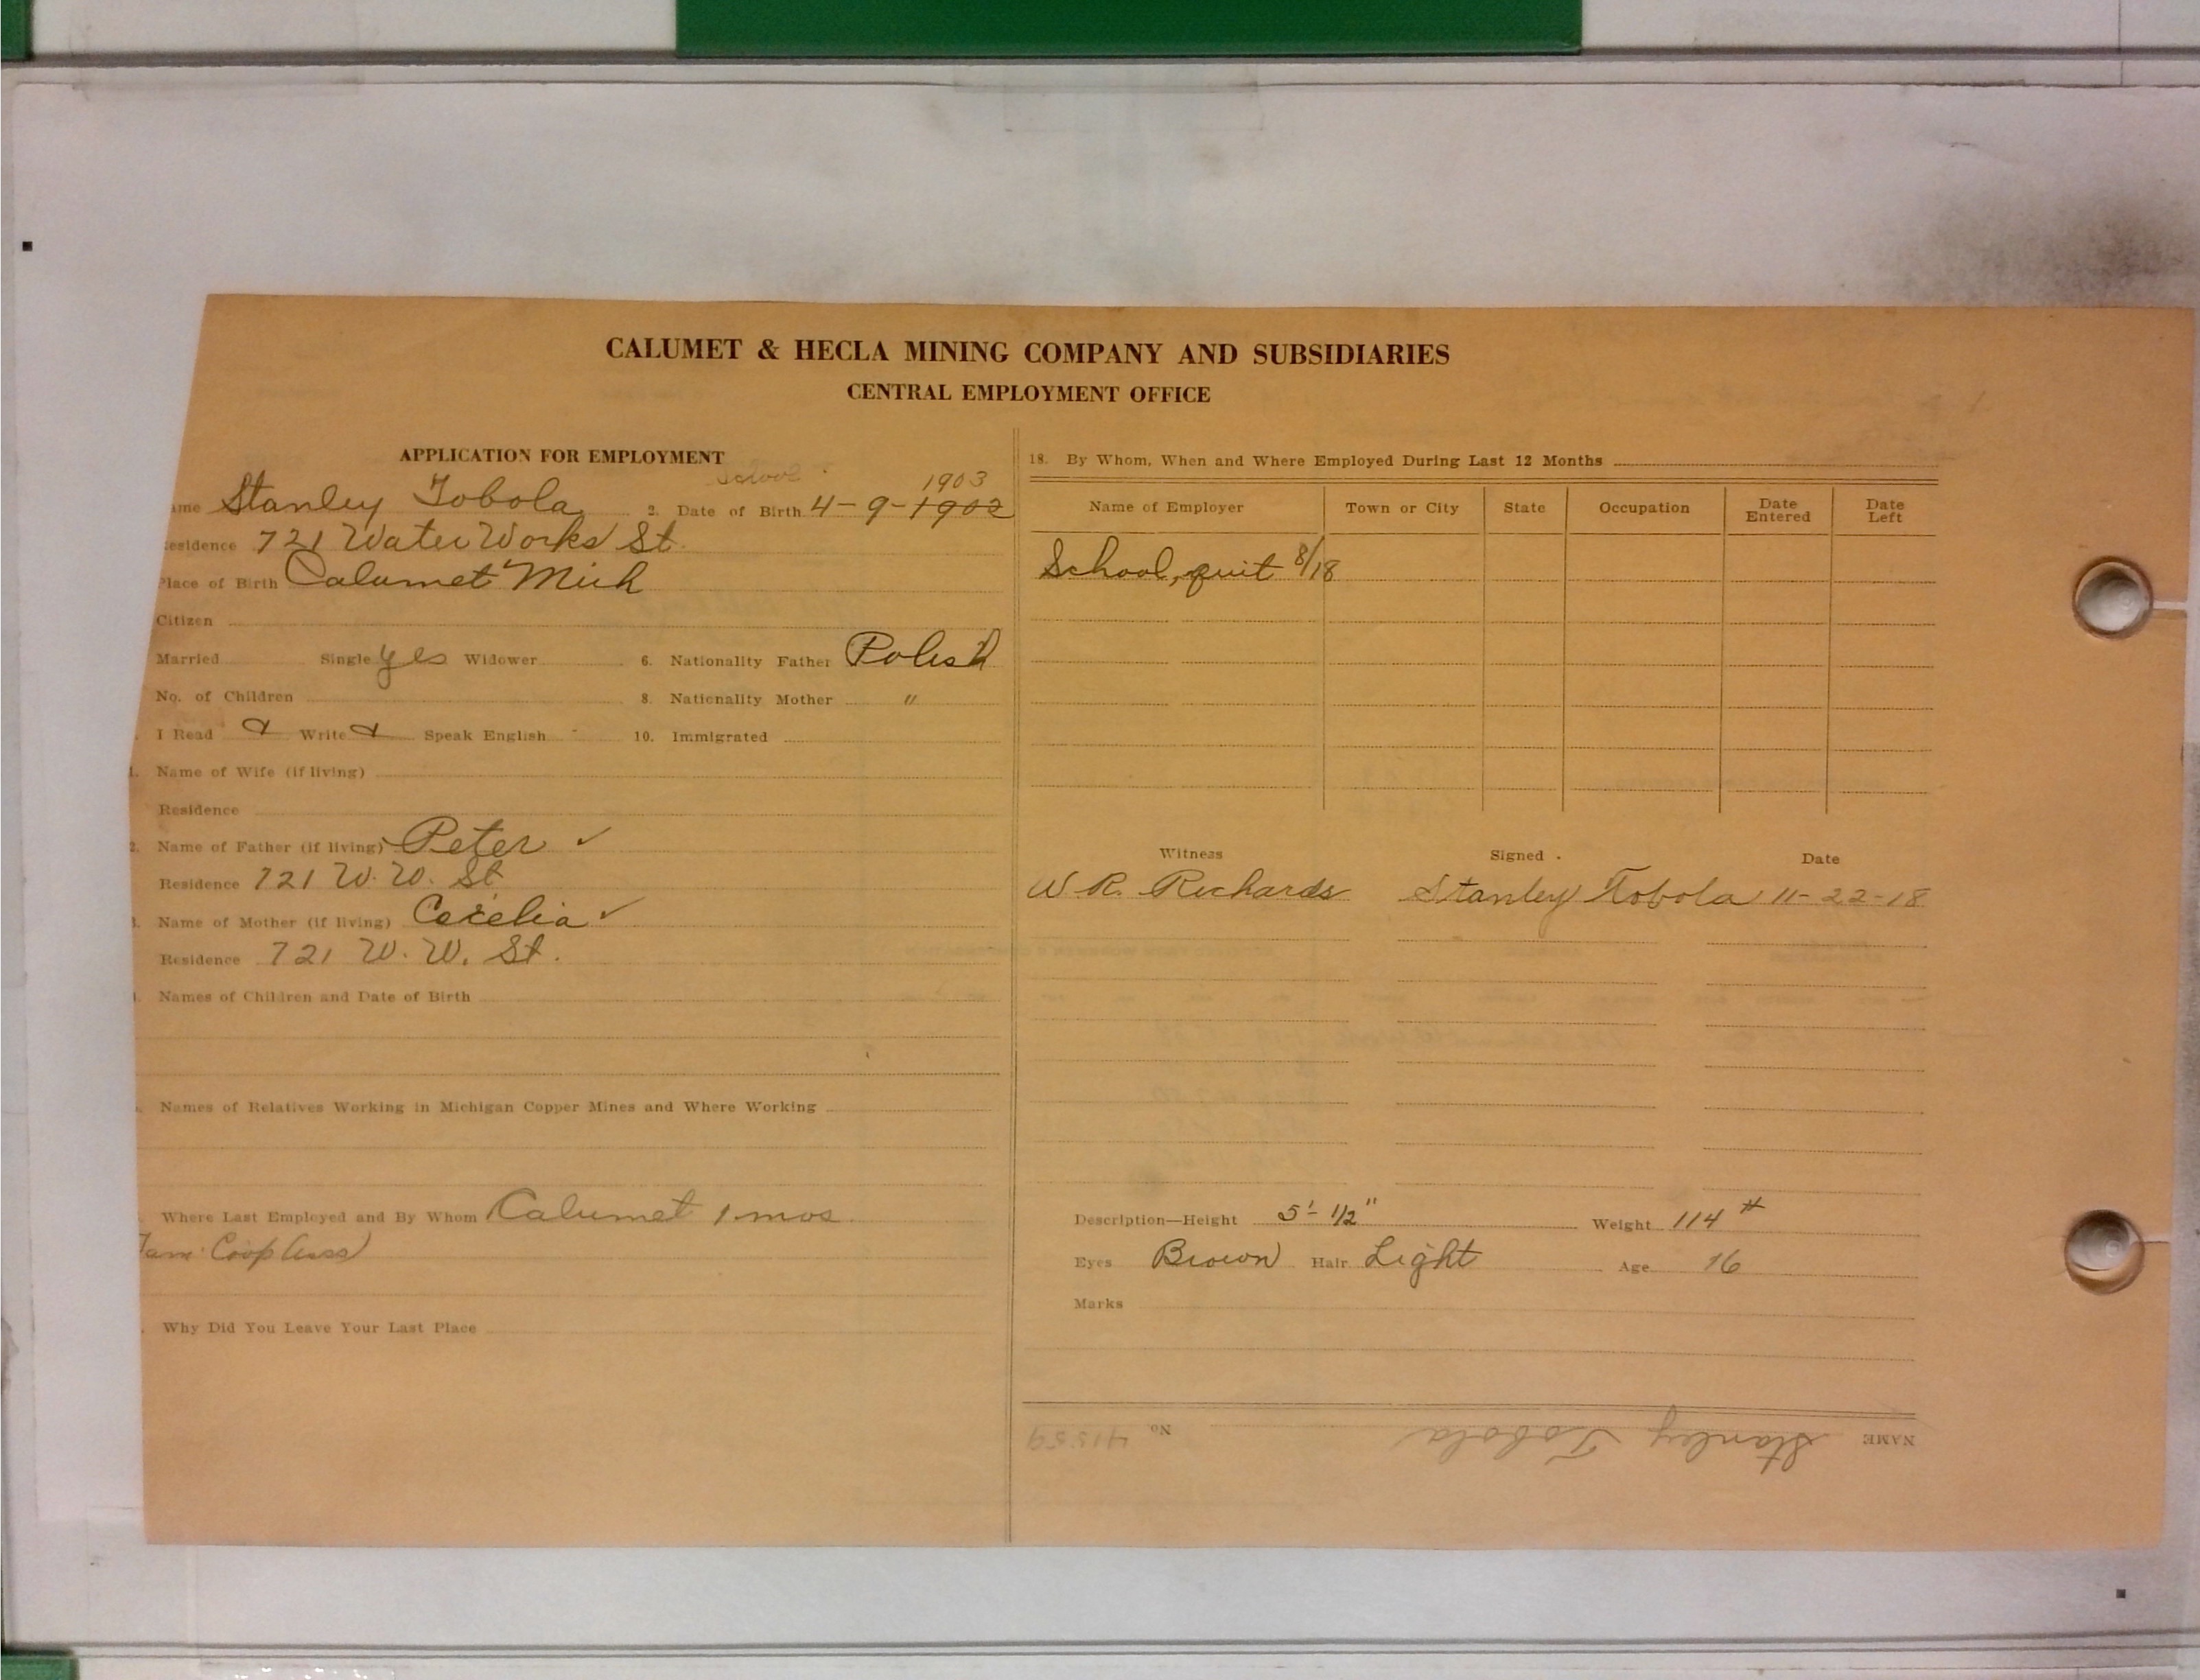 CALUMET & HECLA MINING COMPANY AND SUBSIDIARIES
CENTRAL EMPLOYMENT OFFICE
APPLICATION FOR EMPLOYMENT
School
1903
ame Stanley Tobola 2. Date of Birth 4-9-1902
esidence 721 Water Works St.
Place of Birth Calumet Mich
Citizen
Married Single yes Widower 6. Nationality Father Polish
No. of Children 8. Nationality Mother "
I Read & Write & Speak English 10. Immigrated
1. Name of Wife (if living)
Residence
2. Name of Father (if living) Peter ✓
Residence 721 W. W. St
3. Name of Mother (if living) Cecelia ✓
Residence 721 W. W. St.
Names of Children and Date of Birth
Names of Relatives Working in Michigan Copper Mines and Where Working
Where Last Employed and By Whom Calumet 1 mos
Tam. Coop
Why Did You Leave Your Last Place
18. By Whom, When and Where Employed During Last 12 Months
Name of Employer Town or City State Occupation Date Entered Date Left
School, quit 8/18
Witness Signed Date
W. R. Richards Stanley Tobola 11-22-18
Description—Height 5'-1/2" Weight 114 #
Eyes Brown Hair Light Age 16
Marks
NAME Stanley Tobola No. 41559